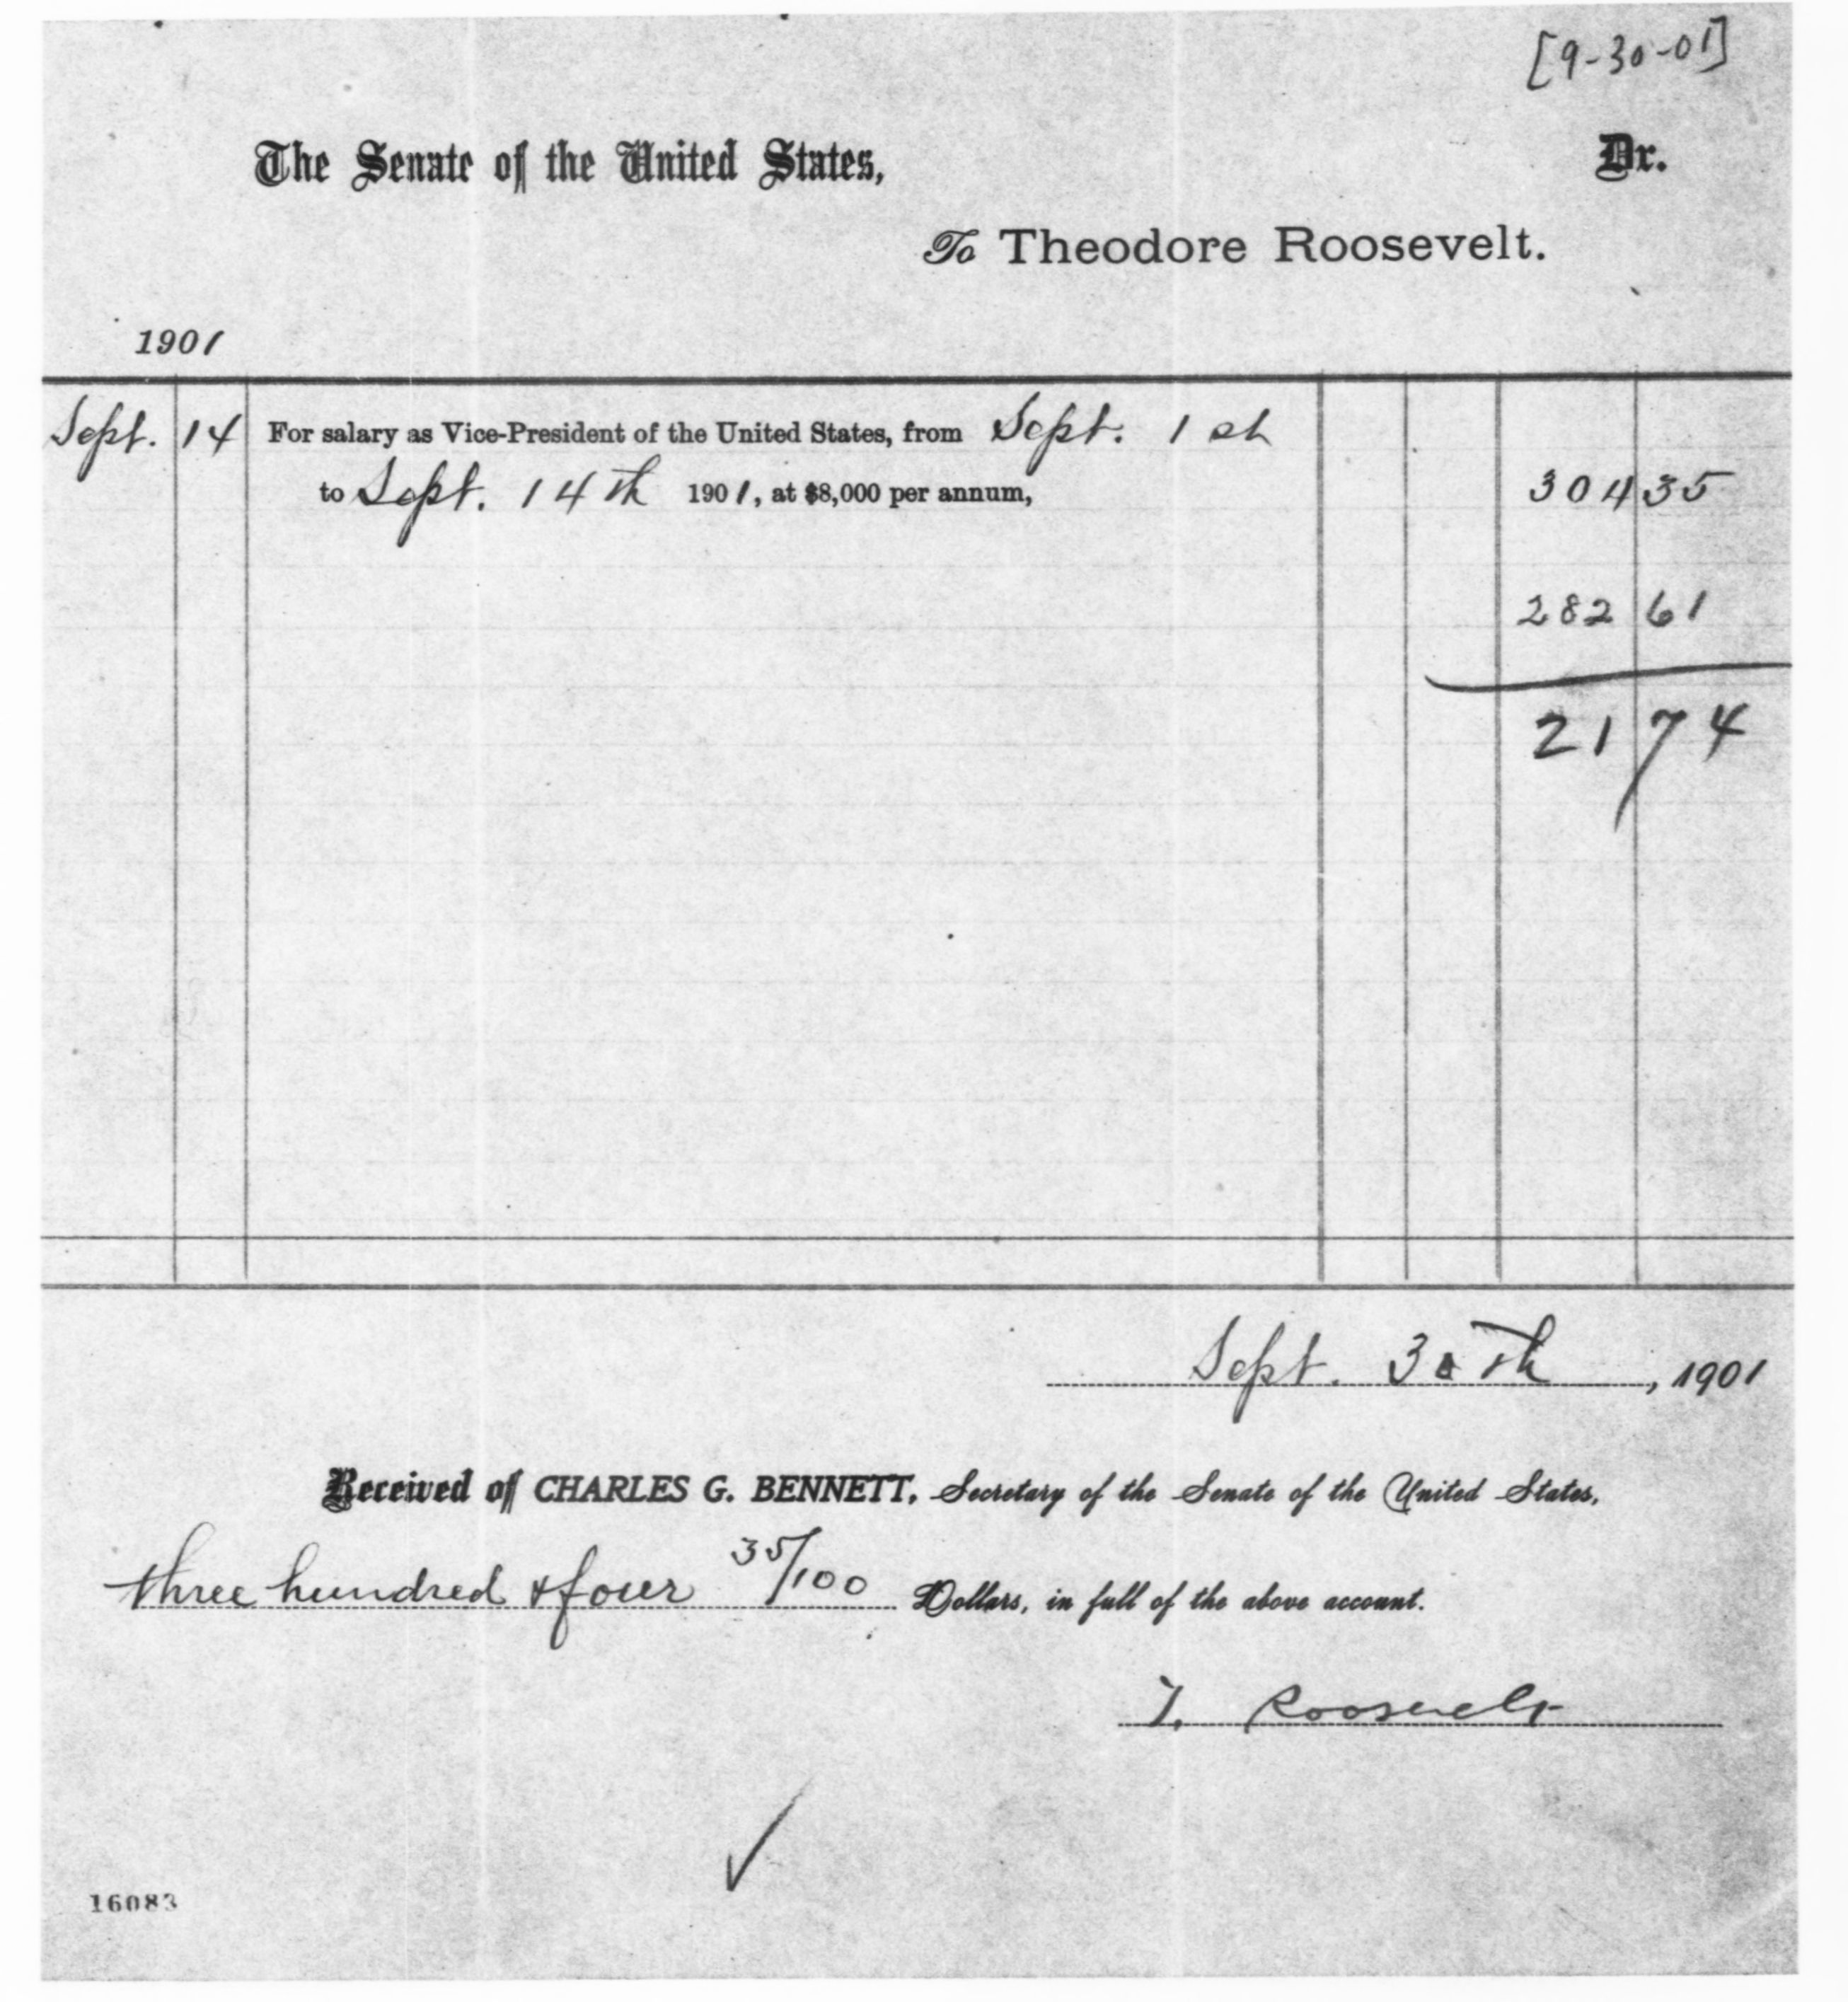 [9-30-01]
The Senate of the United States, Dr.
To Theodore Roosevelt.
1901
Sept. 14 For salary as Vice-President of the United States, from Sept. 1st
to Sept. 14th 1901, at $8,000 per annum, 304 35
282 61
21 74
Sept. 30th, 1901
Received of CHARLES G. BENNETT, Secretary of the Senate of the United States,
three hundred & four 35/100 Dollars, in full of the above account.
T. Roosevelt
16083